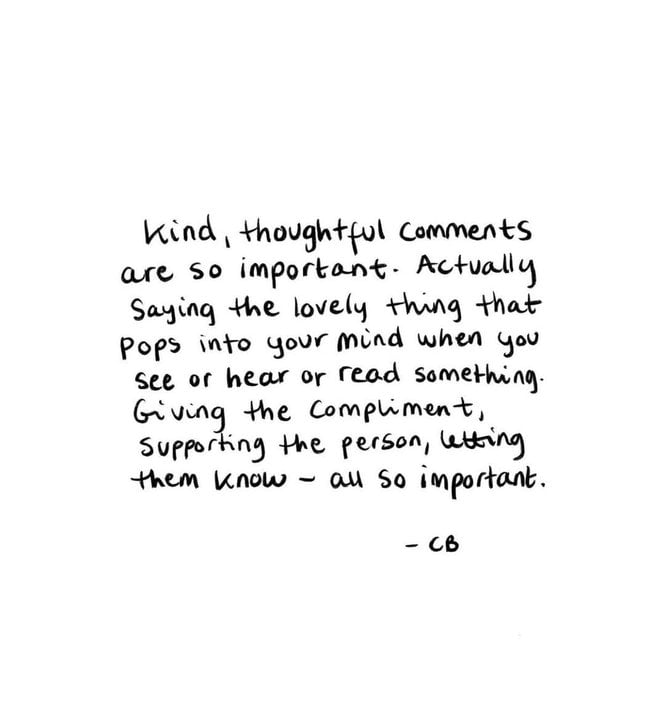 Kind, thoughtful comments
are so important. Actually
saying the lovely thing that
pops into your mind when you
see or hear or read something.
Giving the compliment,
supporting the person, letting
them know - all so important.
- CB